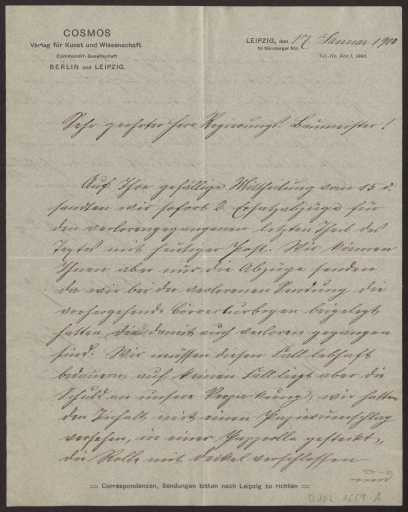 COSMOS
Verlag für Kunst und Wissenschaft.
Commandit-Gesellschaft
BERLIN und LEIPZIG.
LEIPZIG, den 17 Januar 1900
Sehr geehrter Herr Regierungs-Baumeister!
Auf Ihre gefällige Mittheilung vom 15 d.
sandten wir sofort 2 Ersatzabzüge für
den verlorengegangenen letzten Theil des
Textes mit heutiger Post. Wir können
Ihnen aber nur die Abzüge senden
da wir bei der verlorenen Sendung die
vorhergehende Correcturbogen beigelegt
hatten die damit auch verloren gegangen
sind. Wir müssen diesen Fall lebhaft
bedauern, auf keinen Fall liegt aber die
Schuld an unsere Verpackung, wir hatten
den Inhalt mit einem Papierumschlag
versehen, in einer Papprolle gesteckt,
die Rolle mit Deckel verschlossen
Correspondenzen, Sendungen bitten nach Leipzig zu richten